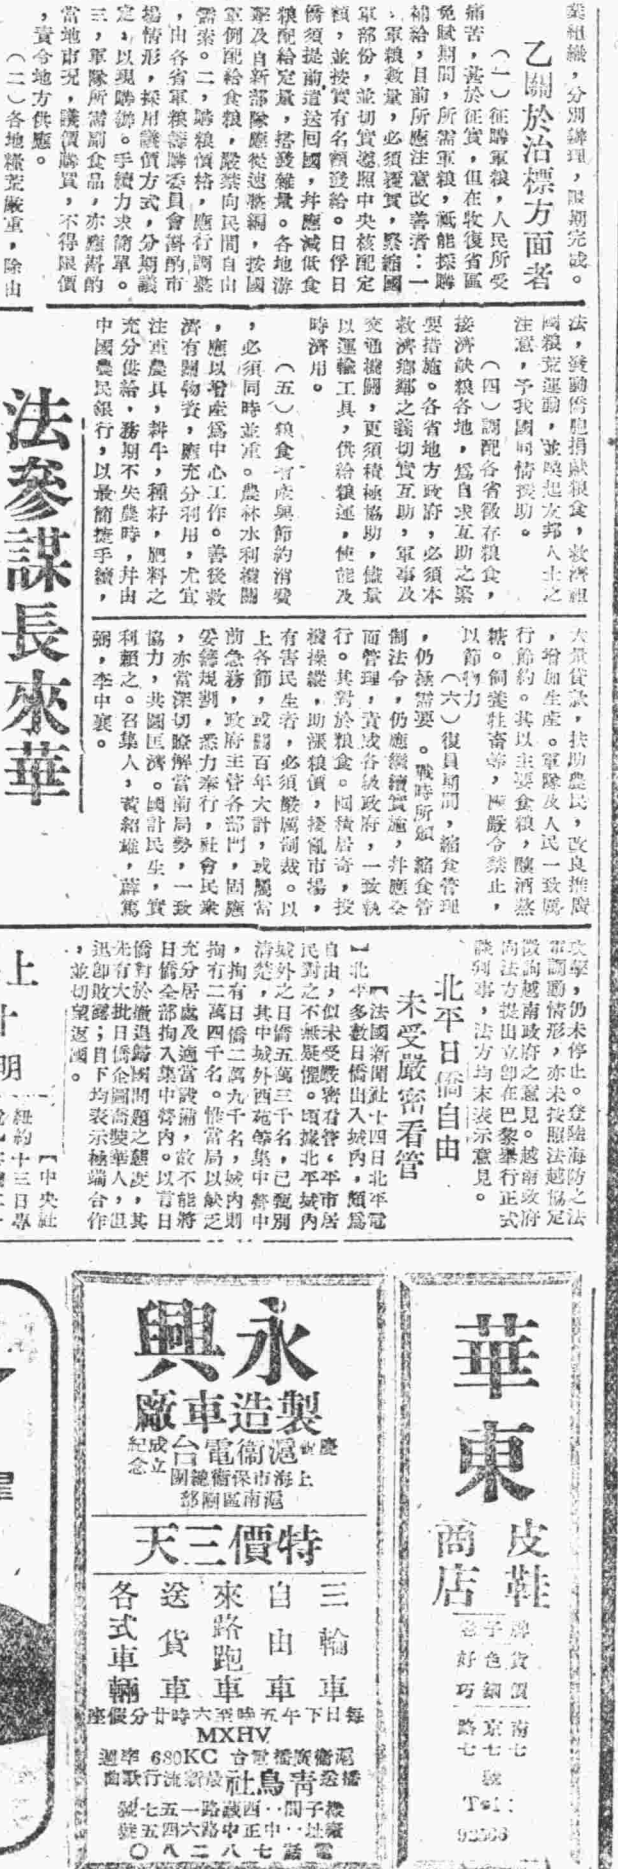 業組織，分別辦理，限期完成。
乙關於治標方面者
（一）征購軍粮，人民所受
痛苦，甚於征實，但在收復省區
免賦期間，所需軍粮，祇能採購
補給，目前所應注意改善者：一
，軍粮數量，必須覈實，緊縮國
軍部份，並切實遵照中央核配定
額，並按實有名額發給。日俘日
僑須提前遣送回國，幷應減低食
粮配給定量，搭發雜量。各地游
擊及自新部隊應從速整編，按國
軍例配給食粮，嚴禁向民間自由
需索。二，購粮價格，應行調整
，由各省軍粮籌購委員會斟酌市
場情形，採用議價方式，分期議
定，以現購辦。手續力求簡單。
三，軍隊所需副食品，亦應斟酌
當地市況，議價購買，不得限價
，責令地方供應。
（二）各地糧荒嚴重，除由
法，發動僑胞捐獻粮食，救濟祖
國粮荒運動，並喚起友邦人士之
注意，予我國同情援助。
（四）調配各省徵存粮食，
接濟缺粮各地，爲自求互助之緊
要措施。各省地方政府，必須本
救濟鄉鄰之義切實互助，軍事及
交通機關，更須積極協助，儘量
以運輸工具，供給粮運，使能及
時濟用。
（五）粮食增產與節約消費
，必須同時並重。農林水利機關
，應以增產爲中心工作。善後救
濟有關物資，應充分利用，尤宜
注重農具，耕牛，種籽，肥料之
充分供給，務期不失農時，幷由
中國農民銀行，以最簡捷手續，
法參謀長來華
大量貸款，扶助農民，改良推廣
，增加生產。軍隊及人民一致厲
行節約。其以主要食粮，釀酒熬
糖。飼養牲畜等，應嚴令禁止，
以節物力
（六）復員期間，縮食管理
，仍極需要。戰時所頒縮食管
制法令，仍應繼續實施，幷應全
面管理，責成各級政府，一致執
行。其對於粮食。囤積居奇，投
機操縱，助漲粮價，擾亂市場，
有害民生者，必須嚴厲制裁。以
上各節，或關百年大計，或屬當
前急務，政府主管各部門，固應
妥籌規劃，悉力奉行，社會民衆
，亦當深切瞭解當前局勢，一致
協力，共圖匡濟。國計民生，實
利賴之。召集人，黃紹雄，薛篤
弼，李中襄。
攻擊，仍未停止。登陸海防之法
軍調動情形，亦未按照法越協定
徵詢越南政府之意見。越南政府
向法方提出立卽在巴黎舉行正式
談判事，法方均未表示意見。
北平日僑自由
未受嚴密看管
【法國新聞社十四日北平電
】北平多數日僑出入城內，頗爲
自由，似未受嚴密看管，平市居
民對之不無疑懼。頃據北平城內
城外之日僑五萬三千名，已甄別
清楚，其中城外西苑等集中營中
拘有日僑二萬九千名，城內則
拘有二萬四千名。惟當局以缺乏
充分居處及適當設備，故不能將
日僑全部拘入集中營內。以前日
僑對於撤退歸國問題之態度，其
先有大批日僑企圖喬裝華人，但
迅卽敗露；目下均表示極端合作
，並切望返國。
上
【中央社
紐約十三日專
華東
皮鞋
商店
老牌子
貨色好
價錢巧
南京路
七七七號
Tel:
永興
製造車廠
慶祝滬衞電台成立紀念
上海市保衞總團
滬南區團部
特價三天
三輪車
自由車
來路跑車
送貨車
各式車輛
每日下午五時至六時廿分假座
MXHV
滬衞廣播電台 680KC 率週
青鳥社
播送最新流行歌曲